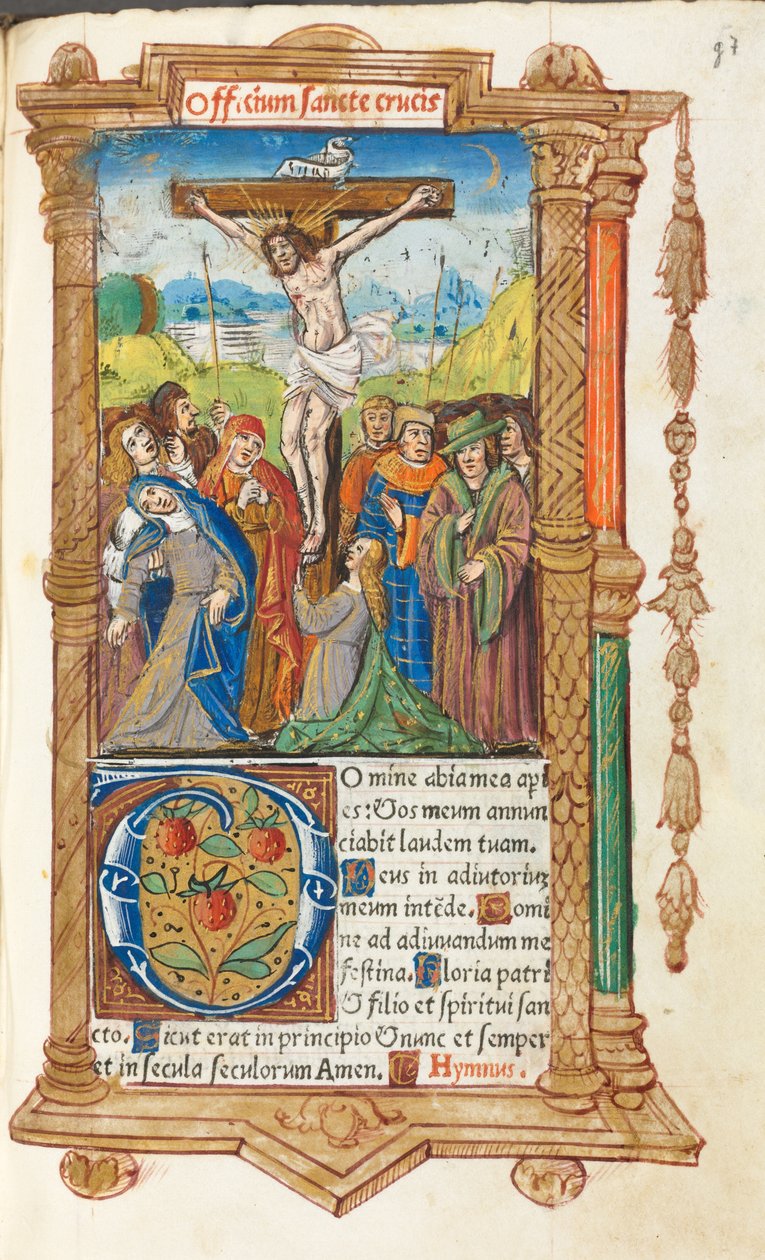 97
Officium sancte crucis
Domine labia mea api
es: Et os meum annun
ciabit laudem tuam.
Deus in adiutoriuz
meum intēde. Domi
ne ad adiuuandum me
festina. Gloria patri
& filio et spiritui san
cto. Sicut erat in principio & nunc et semper
et in secula seculorum Amen. Hymnus.